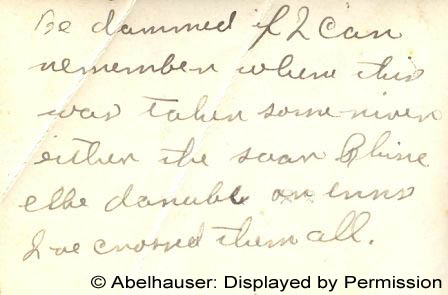 Be dammed if I can
remember where this
was taken some river
either the saar Rhine
elbe danube or enns
I've crossed them all.
© Abelhauser: Displayed by Permission